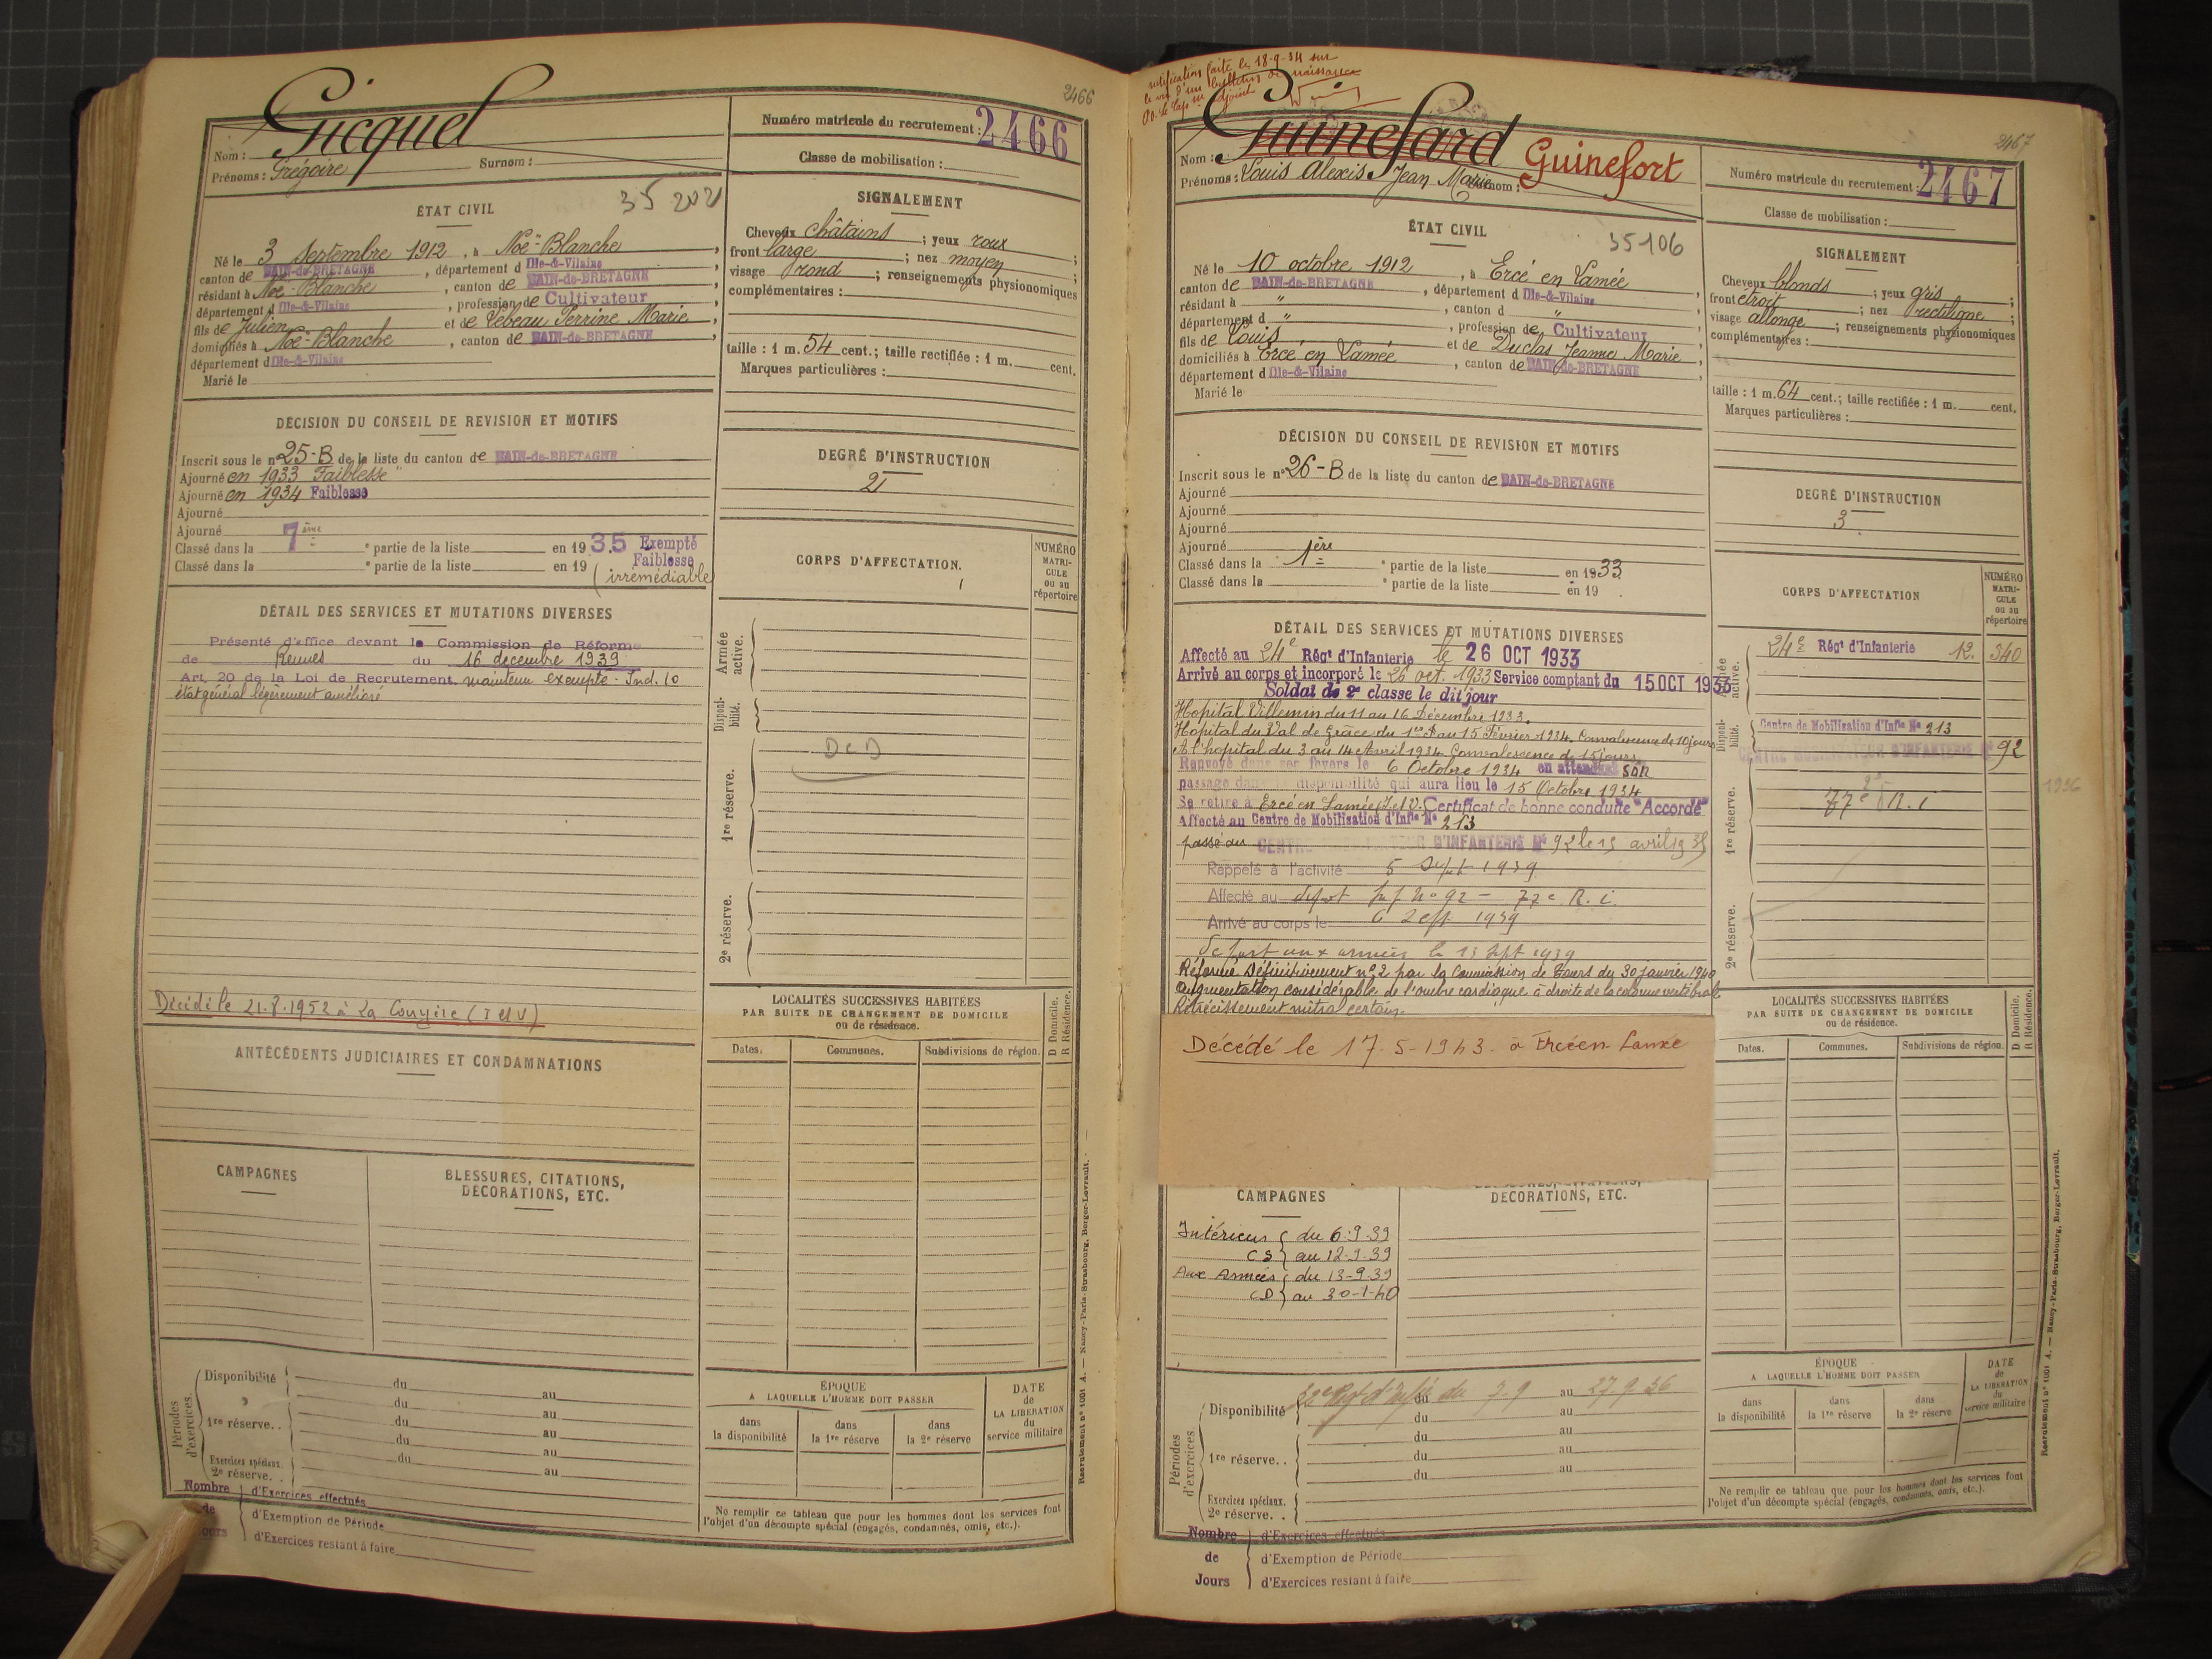 2466
Gicquel
Nom :
Prénoms : Grégoire Surnom :
Numéro matricule du recrutement : 2466
Classe de mobilisation :
35 202
ÉTAT CIVIL
Né le 3 Septembre 1912, à Noë-Blanche
canton de BAIN-de-BRETAGNE, département d Ille-&-Vilaine
résidant à Noë-Blanche, canton de BAIN-de-BRETAGNE
département d Ille-&-Vilaine, profession de Cultivateur
fils de Julien et de Lebeau Perrine Marie
domiciliés à Noë-Blanche, canton de BAIN-de-BRETAGNE
département d Ille-&-Vilaine
Marié le
SIGNALEMENT
Cheveux châtains ; yeux roux
front large ; nez moyen ;
visage rond ; renseignements physionomiques
complémentaires :
taille : 1 m. 54 cent. ; taille rectifiée : 1 m. cent.
Marques particulières :
DÉCISION DU CONSEIL DE REVISION ET MOTIFS
Inscrit sous le n° 25-B de la liste du canton de BAIN-de-BRETAGNE
Ajourné en 1933 "Faiblesse"
Ajourné en 1934 Faiblesse
Ajourné
Ajourné
Classé dans la 7ème partie de la liste en 1935 Exempté
Faiblesse
Classé dans la partie de la liste en 19 (irrémédiable)
DEGRÉ D'INSTRUCTION
2
DÉTAIL DES SERVICES ET MUTATIONS DIVERSES
Présenté d'office devant la Commission de Réforme
de Rennes du 16 decembre 1939
Art. 20 de la Loi de Recrutement, maintenu exempté - Ind. 10
état général légèrement amélioré
Décédé le 21.8.1952 à La Couyère (I et V)
CORPS D'AFFECTATION.
NUMÉRO MATRICULE ou au répertoire
Armée active.
Disponibilité.
DCD
1re réserve.
2e réserve.
ANTÉCÉDENTS JUDICIAIRES ET CONDAMNATIONS
LOCALITÉS SUCCESSIVES HABITÉES
PAR SUITE DE CHANGEMENT DE DOMICILE
ou de résidence.
D Domicile.
R Résidence.
Dates. Communes. Subdivisions de région.
CAMPAGNES
BLESSURES, CITATIONS,
DÉCORATIONS, ETC.
Périodes d'exercices.
Disponibilité du au
du au
1re réserve. . du au
du au
Exercices spéciaux. du au
2e réserve. . au
Nombre de Jours
d'Exercices effectués
d'Exemption de Période
d'Exercices restant à faire
ÉPOQUE
A LAQUELLE L'HOMME DOIT PASSER
dans la disponibilité
dans la 1re réserve
dans la 2e réserve
DATE de LA LIBÉRATION du service militaire
Ne remplir ce tableau que pour les hommes dont les services font
l'objet d'un décompte spécial (engagés, condamnés, omis, etc.).
Recrutement n° 1001 A. — Nancy-Paris-Strasbourg, Berger-Levrault.
rectification faite le 18-9-34 sur
le vu d'un bulletin de naissance
2467
Guinefard Guinefort
Nom :
Prénoms : Louis Alexis Jean Marie Surnom :
Numéro matricule du recrutement : 2467
Classe de mobilisation :
35106
ÉTAT CIVIL
Né le 10 octobre 1912, à Ercé en Lamée
canton de BAIN-de-BRETAGNE, département d Ille-&-Vilaine
résidant à ", canton d "
département d ", profession de Cultivateur
fils de Louis et de Duclos Jeanne Marie
domiciliés à Ercé en Lamée, canton de BAIN-de-BRETAGNE
département d Ille-&-Vilaine
Marié le
SIGNALEMENT
Cheveux blonds ; yeux gris
front étroit ; nez rectiligne ;
visage allongé ; renseignements physionomiques
complémentaires :
taille : 1 m. 64 cent. ; taille rectifiée : 1 m. cent.
Marques particulières :
DÉCISION DU CONSEIL DE REVISION ET MOTIFS
Inscrit sous le n° 26-B de la liste du canton de BAIN-de-BRETAGNE
Ajourné
Ajourné
Ajourné
Ajourné
Classé dans la 1ère partie de la liste en 1933
Classé dans la partie de la liste en 19
DEGRÉ D'INSTRUCTION
3
DÉTAIL DES SERVICES ET MUTATIONS DIVERSES
Affecté au 24e Régt d'Infanterie le 26 OCT 1933
Arrivé au corps et incorporé le 26 oct. 1933 Service comptant du 15 OCT 1933
Soldat de 2e classe le dit jour
Hopital Villemin du 11 au 16 Décembre 1933.
Hopital du Val de Grâce du 1er au 15 Février 1934. Convalescence de 10 jours
A l'hopital du 3 au 14 Avril 1934. Convalescence de 15 jours
Renvoyé dans ses foyers le 6 Octobre 1934 en attendant son
passage dans la disponibilité qui aura lieu le 15 Octobre 1934
Se retire à Ercé en Lamée (I. et V). Certificat de bonne conduite "Accordé"
Affecté au Centre de Mobilisation d'Infie No 213
passé au CENTRE MOBILISATEUR D'INFANTERIE No 92 le 15 avril 1935
Rappelé à l'activité 5 Sept 1939
Affecté au depot Inf No 92 - 77e R.i.
Arrivé au corps le 6 Sept 1939
depart aux armées le 13 Sept 1939
Réformé définitivement n° 2 par la Commission de Tours du 30 janvier 1940
augmentation considérable de l'ombre cardiaque à droite de la colonne vertébrale
Rétrécissement mitral certain.
Décédé le 17-5-1943 à Ercé en Lamée
CORPS D'AFFECTATION
NUMÉRO MATRICULE ou au répertoire
Armée active.
24e Régt d'Infanterie 12. 540
Disponibilité.
Centre de Mobilisation d'Infie No 213
CENTRE MOBILISATEUR D'INFANTERIE No 92
77e R.i
1936
1re réserve.
2e réserve.
LOCALITÉS SUCCESSIVES HABITÉES
PAR SUITE DE CHANGEMENT DE DOMICILE
ou de résidence.
D Domicile.
R Résidence.
Dates. Communes. Subdivisions de région.
CAMPAGNES
DÉCORATIONS, ETC.
Intérieur du 6-9-39
CS au 12-9-39
Aux Armées du 13-9-39
CD au 30-1-40
Périodes d'exercices.
Disponibilité du 7-9 au 27-9-36
du au
1re réserve. . du au
du au
du au
Exercices spéciaux.
2e réserve. .
Nombre de Jours
d'Exercices effectués
d'Exemption de Période
d'Exercices restant à faire
ÉPOQUE
A LAQUELLE L'HOMME DOIT PASSER
dans la disponibilité
dans la 1re réserve
dans la 2e réserve
DATE de LA LIBÉRATION du service militaire
Ne remplir ce tableau que pour les hommes dont les services font
l'objet d'un décompte spécial (engagés, condamnés, omis, etc.).
Recrutement n° 1001 A. — Nancy-Paris-Strasbourg, Berger-Levrault.